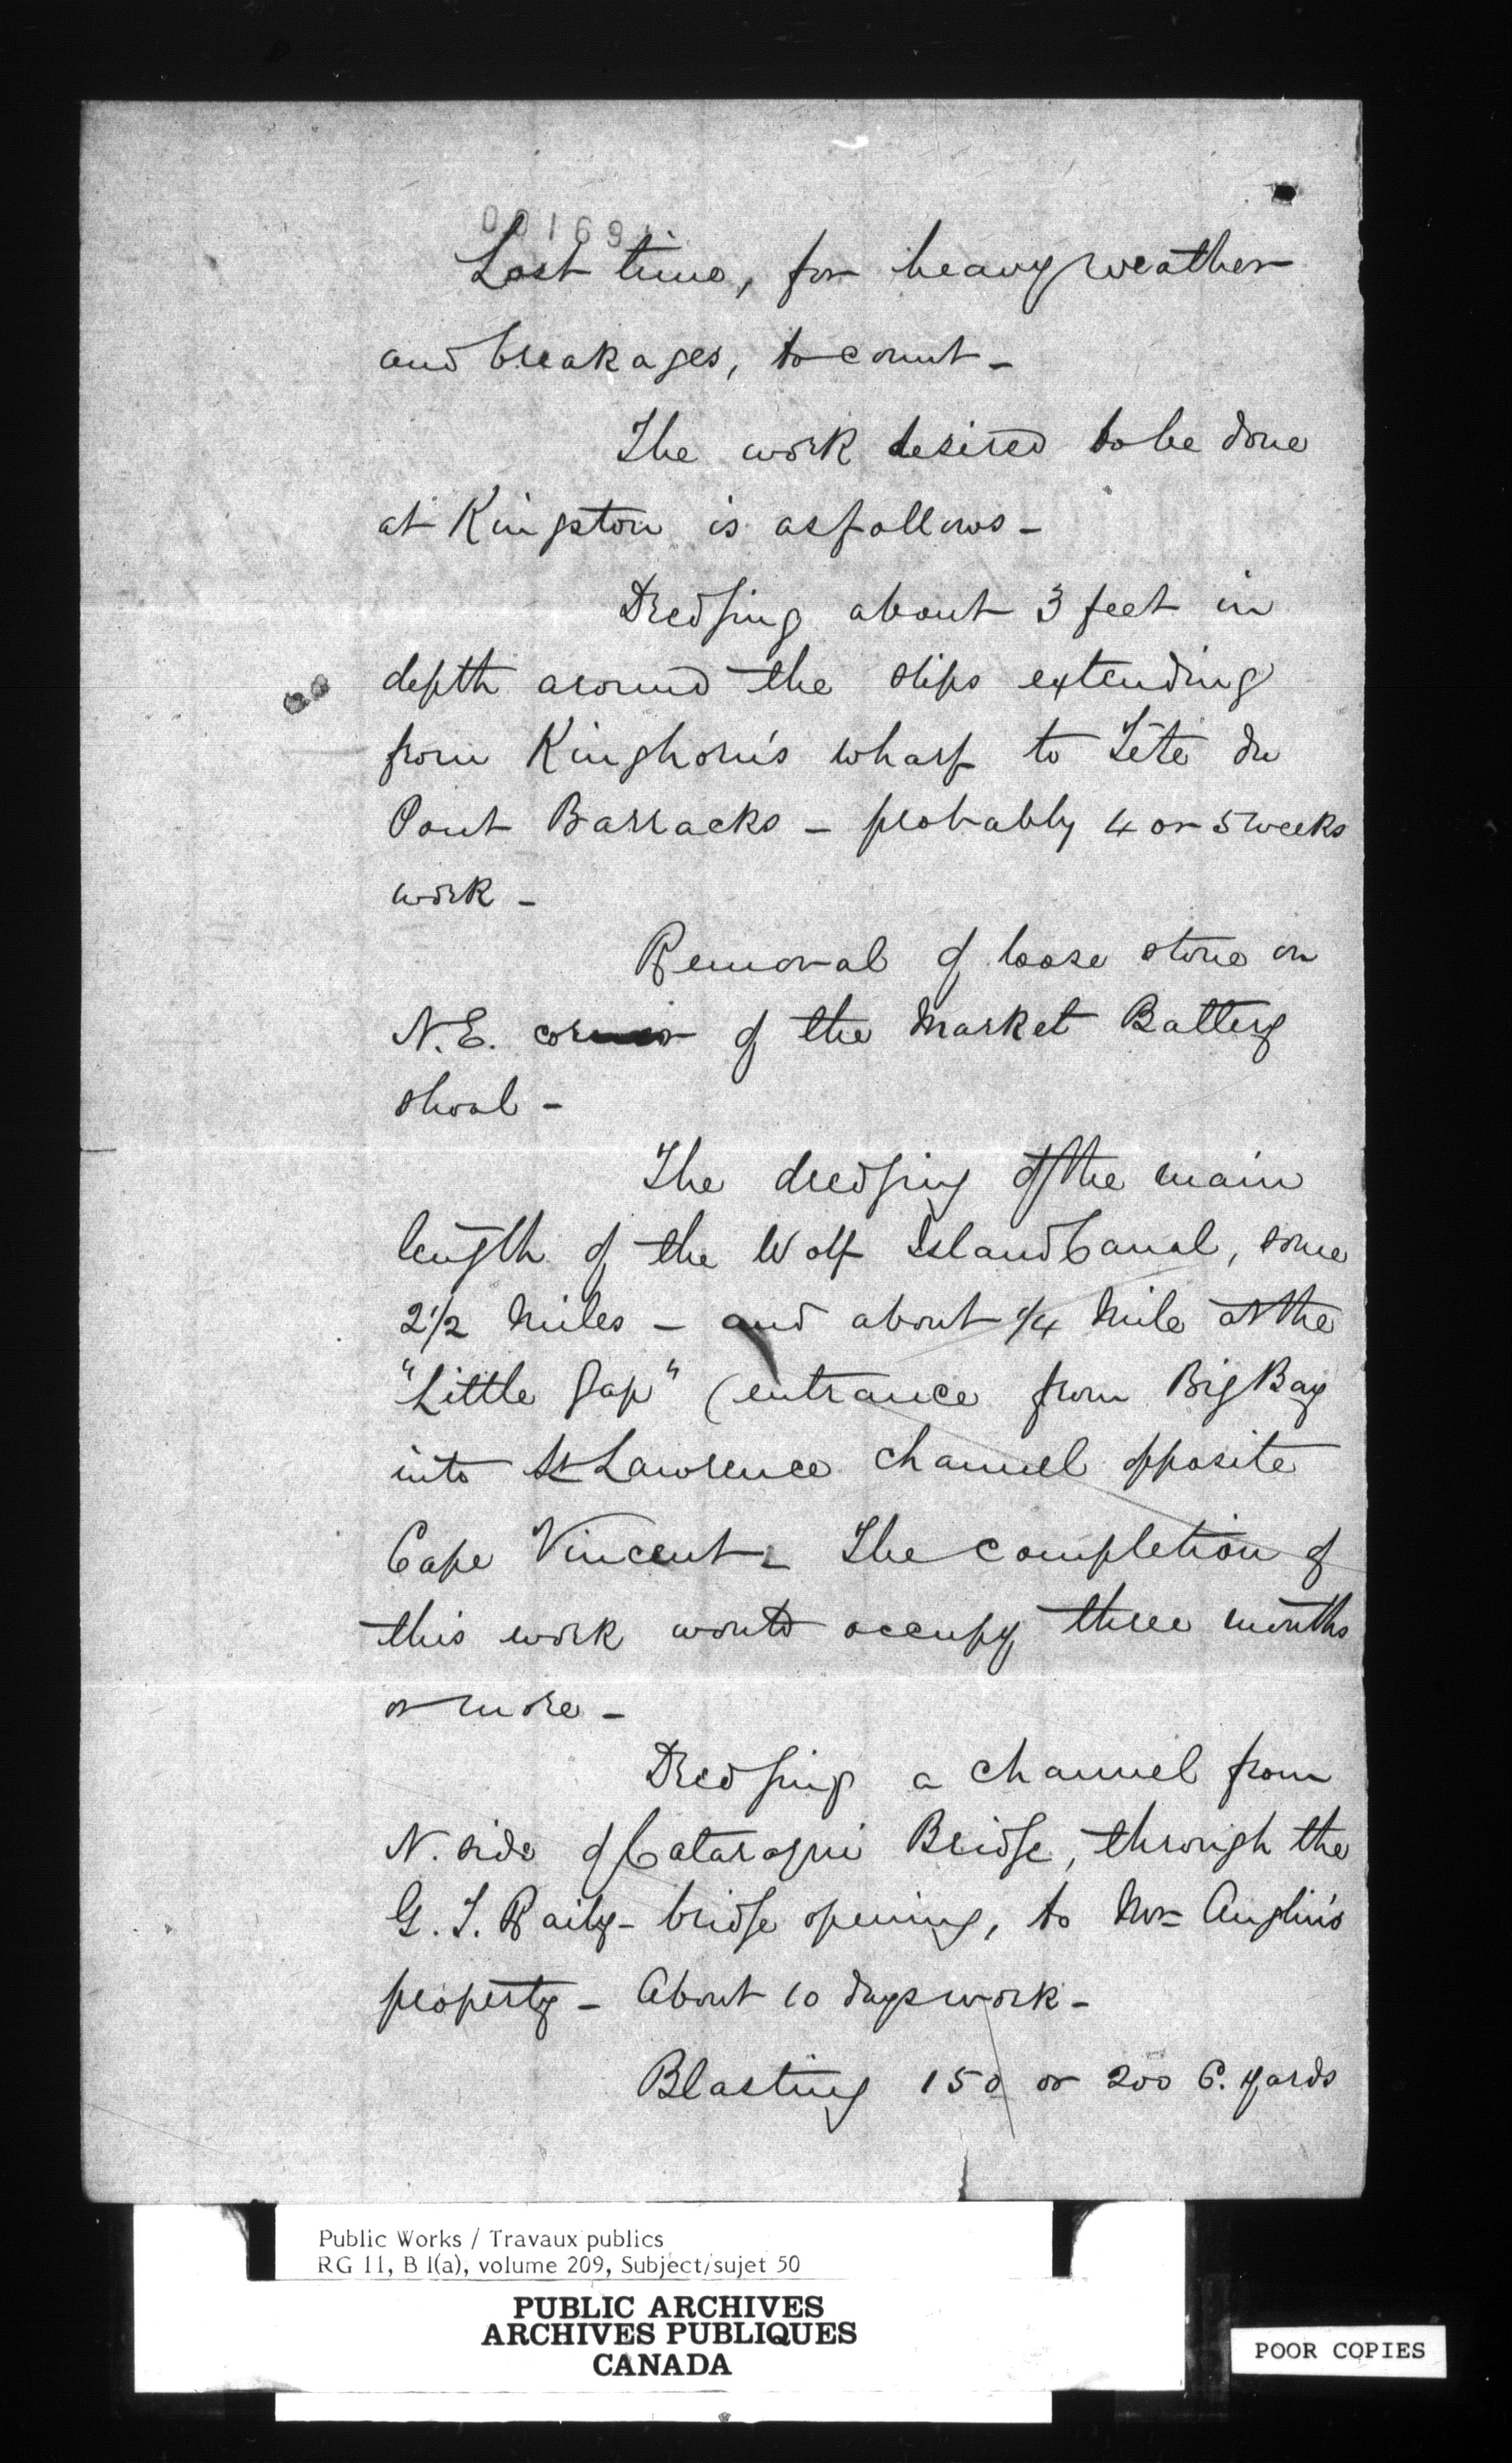 00169
Lost time, for heavy weather
and breakages, to count -
The work desired to be done
at Kingston is as follows -
Dredging about 3 feet in
depth around the slips extending
from Kinghorn's wharf to Tête du
Pont Barracks - probably 4 or 5 weeks
work -
Removal of loose stone on
N.E. corner of the Market Battery
shoal -
The dredging of the main
length of the Wolf Island Canal, some
2 1/2 miles - and about 1/4 mile at the
"Little Gap" (entrance from Big Bay
into St Lawrence channel opposite
Cape Vincent - The completion of
this work would occupy three months
or more -
Dredging a channel from
N. side of Cataraqui Bridge, through the
G. T. Raily - bridge opening, to Anglin's
property - About 10 days work -
Blasting 150 or 200 C. yards
Public Works / Travaux publics
RG 11, B 1(a), volume 209, Subject/sujet 50
PUBLIC ARCHIVES
ARCHIVES PUBLIQUES
CANADA
POOR COPIES